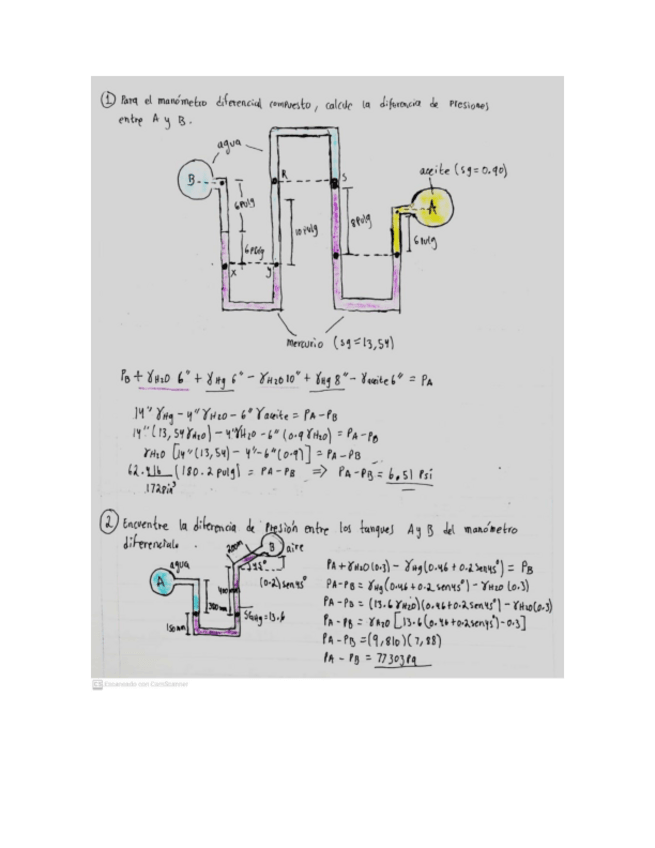 ① Para el manómetro diferencial compuesto, calcule la diferencia de presiones
entre A y B.
agua
aceite (sg=0.90)
B
R
S
A
6pulg
10 pulg
8pulg
6 pulg
6 pulg
x
y
mercurio (sg=13,54)
PB + γH2O 6" + γHg 6" - γH2O 10" + γHg 8" - γaceite 6" = PA
14" γHg - 4" γH2O - 6" γaceite = PA - PB
14" (13,54 γH2O) - 4" γH2O - 6" (0.9 γH2O) = PA - PB
γH2O [14" (13,54) - 4" - 6" (0.9)] = PA - PB
62.4lb (180.2 pulg) = PA - PB ⇒ PA - PB = 6,51 Psi
1728in³
② Encuentre la diferencia de presión entre los tanques A y B del manómetro
diferencial.
B
aire
45°
agua
(0.2)sen45°
A
SGHg=13.6
150mm
PA + γH2O (0.3) - γHg (0.46 + 0.2 sen45°) = PB
PA - PB = γHg (0.46 + 0.2 sen45°) - γH2O (0.3)
PA - PB = (13.6 γH2O) (0.46 + 0.2 sen45°) - γH2O (0.3)
PA - PB = γH2O [13.6 (0.46 + 0.2 sen45°) - 0.3]
PA - PB = (9,810) (7,88)
PA - PB = 77303 Pa
CS Escaneado con CamScanner